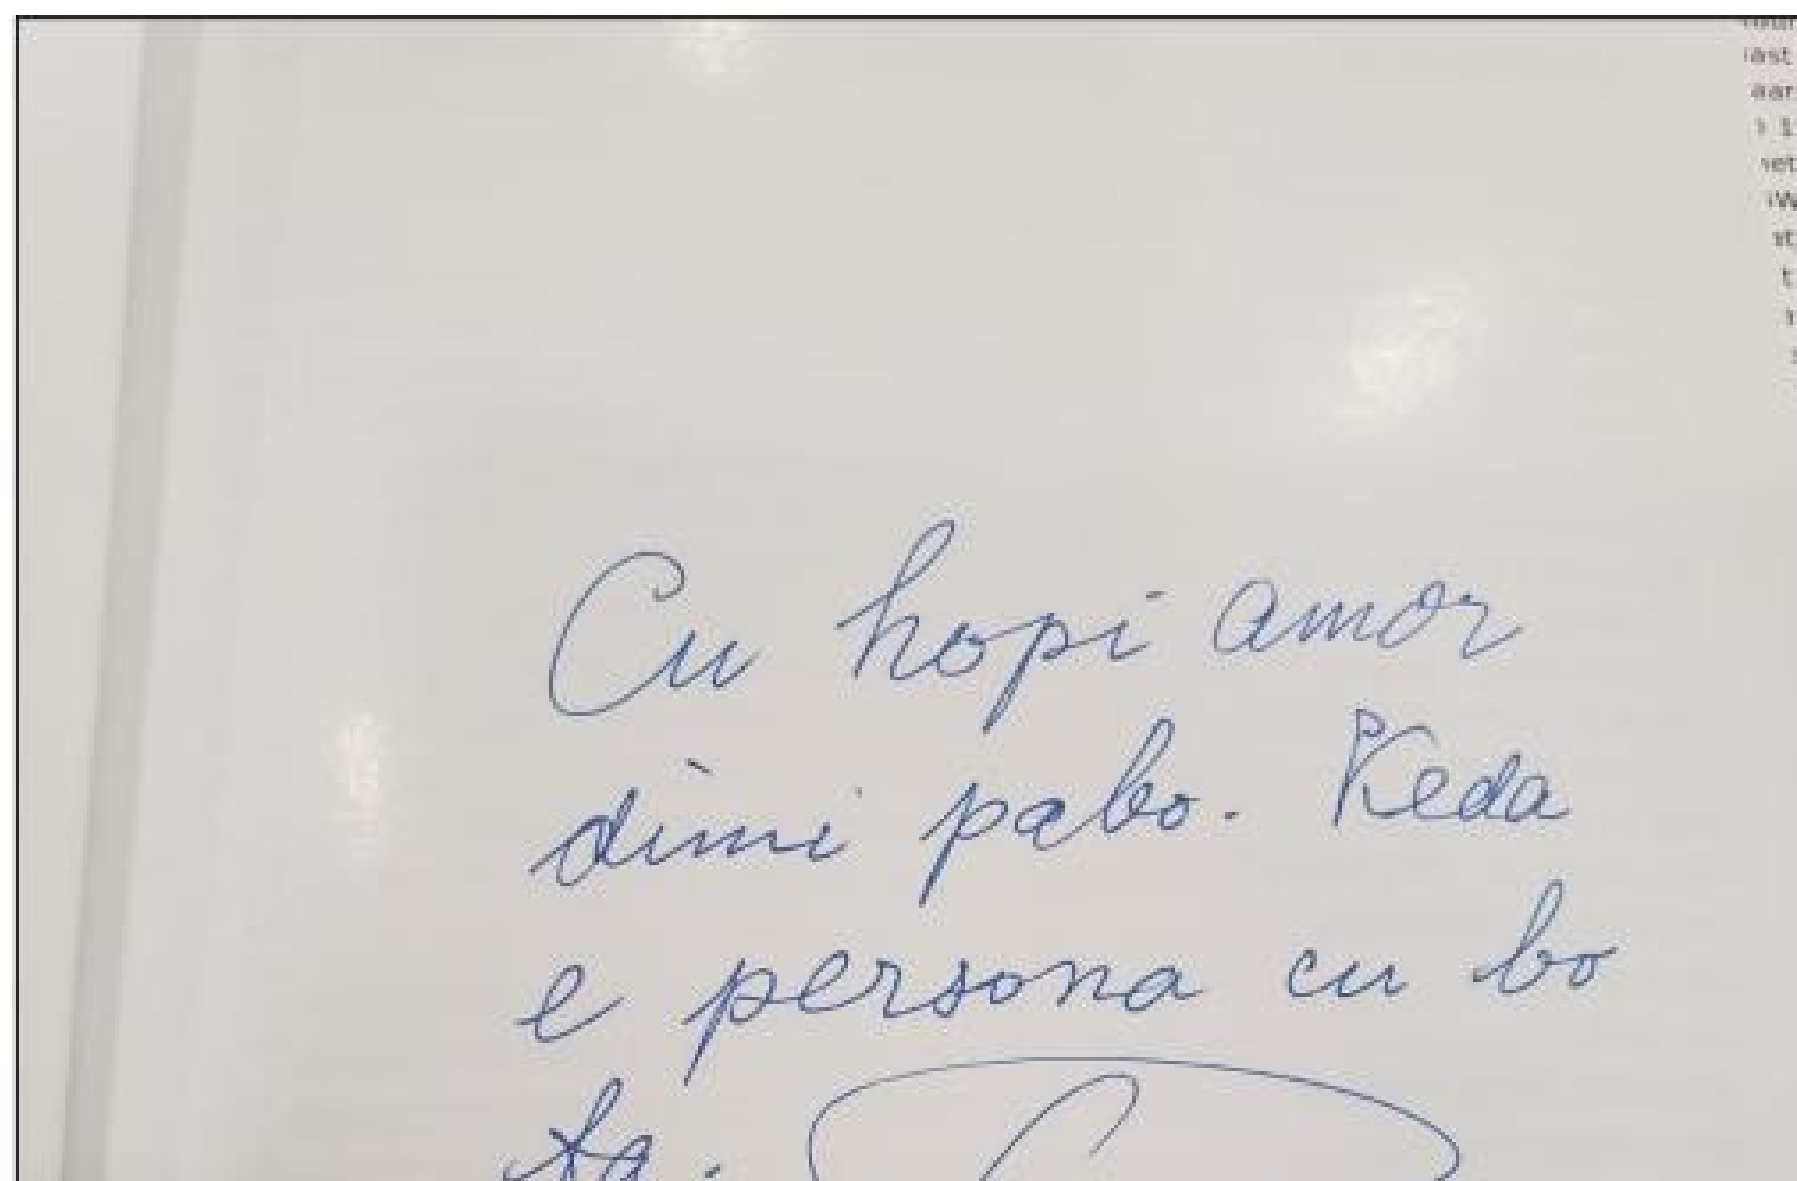 Cu hopi amor
dimi pabo. Keda
e persona cu bo
ta.
ast
aar